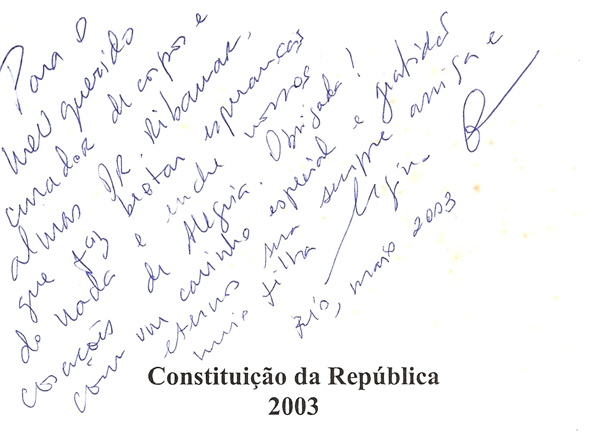 Para o
meu querido
curador de corpos e
almas DR. Ribamar,
que faz brotar esperanças
do nada e enche nossos
corações de Alegria. Obrigada!
com um carinho especial e gratidão
eternos sua sempre amiga e
meio filha
Rio, maio 2003
Constituição da República
2003